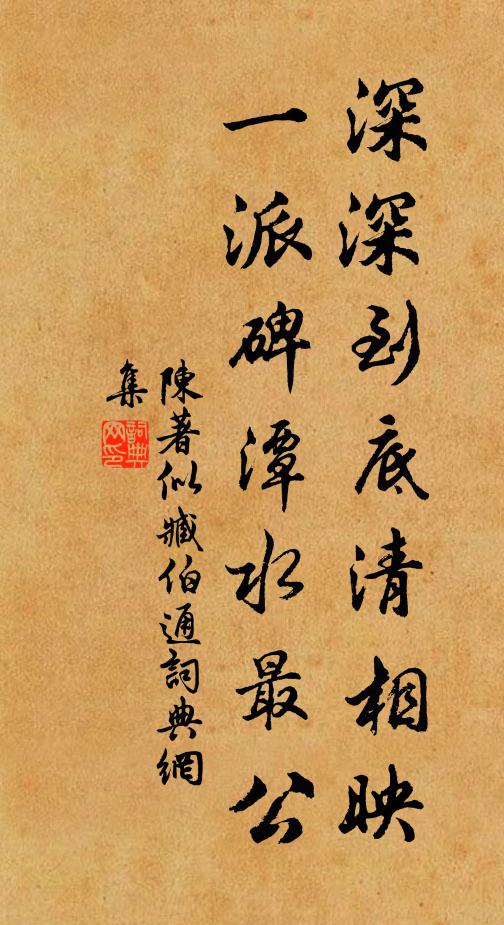 深深到底清相映
一派碑潭水最公
陳著似臧伯通詞典網
集
詞典
网印